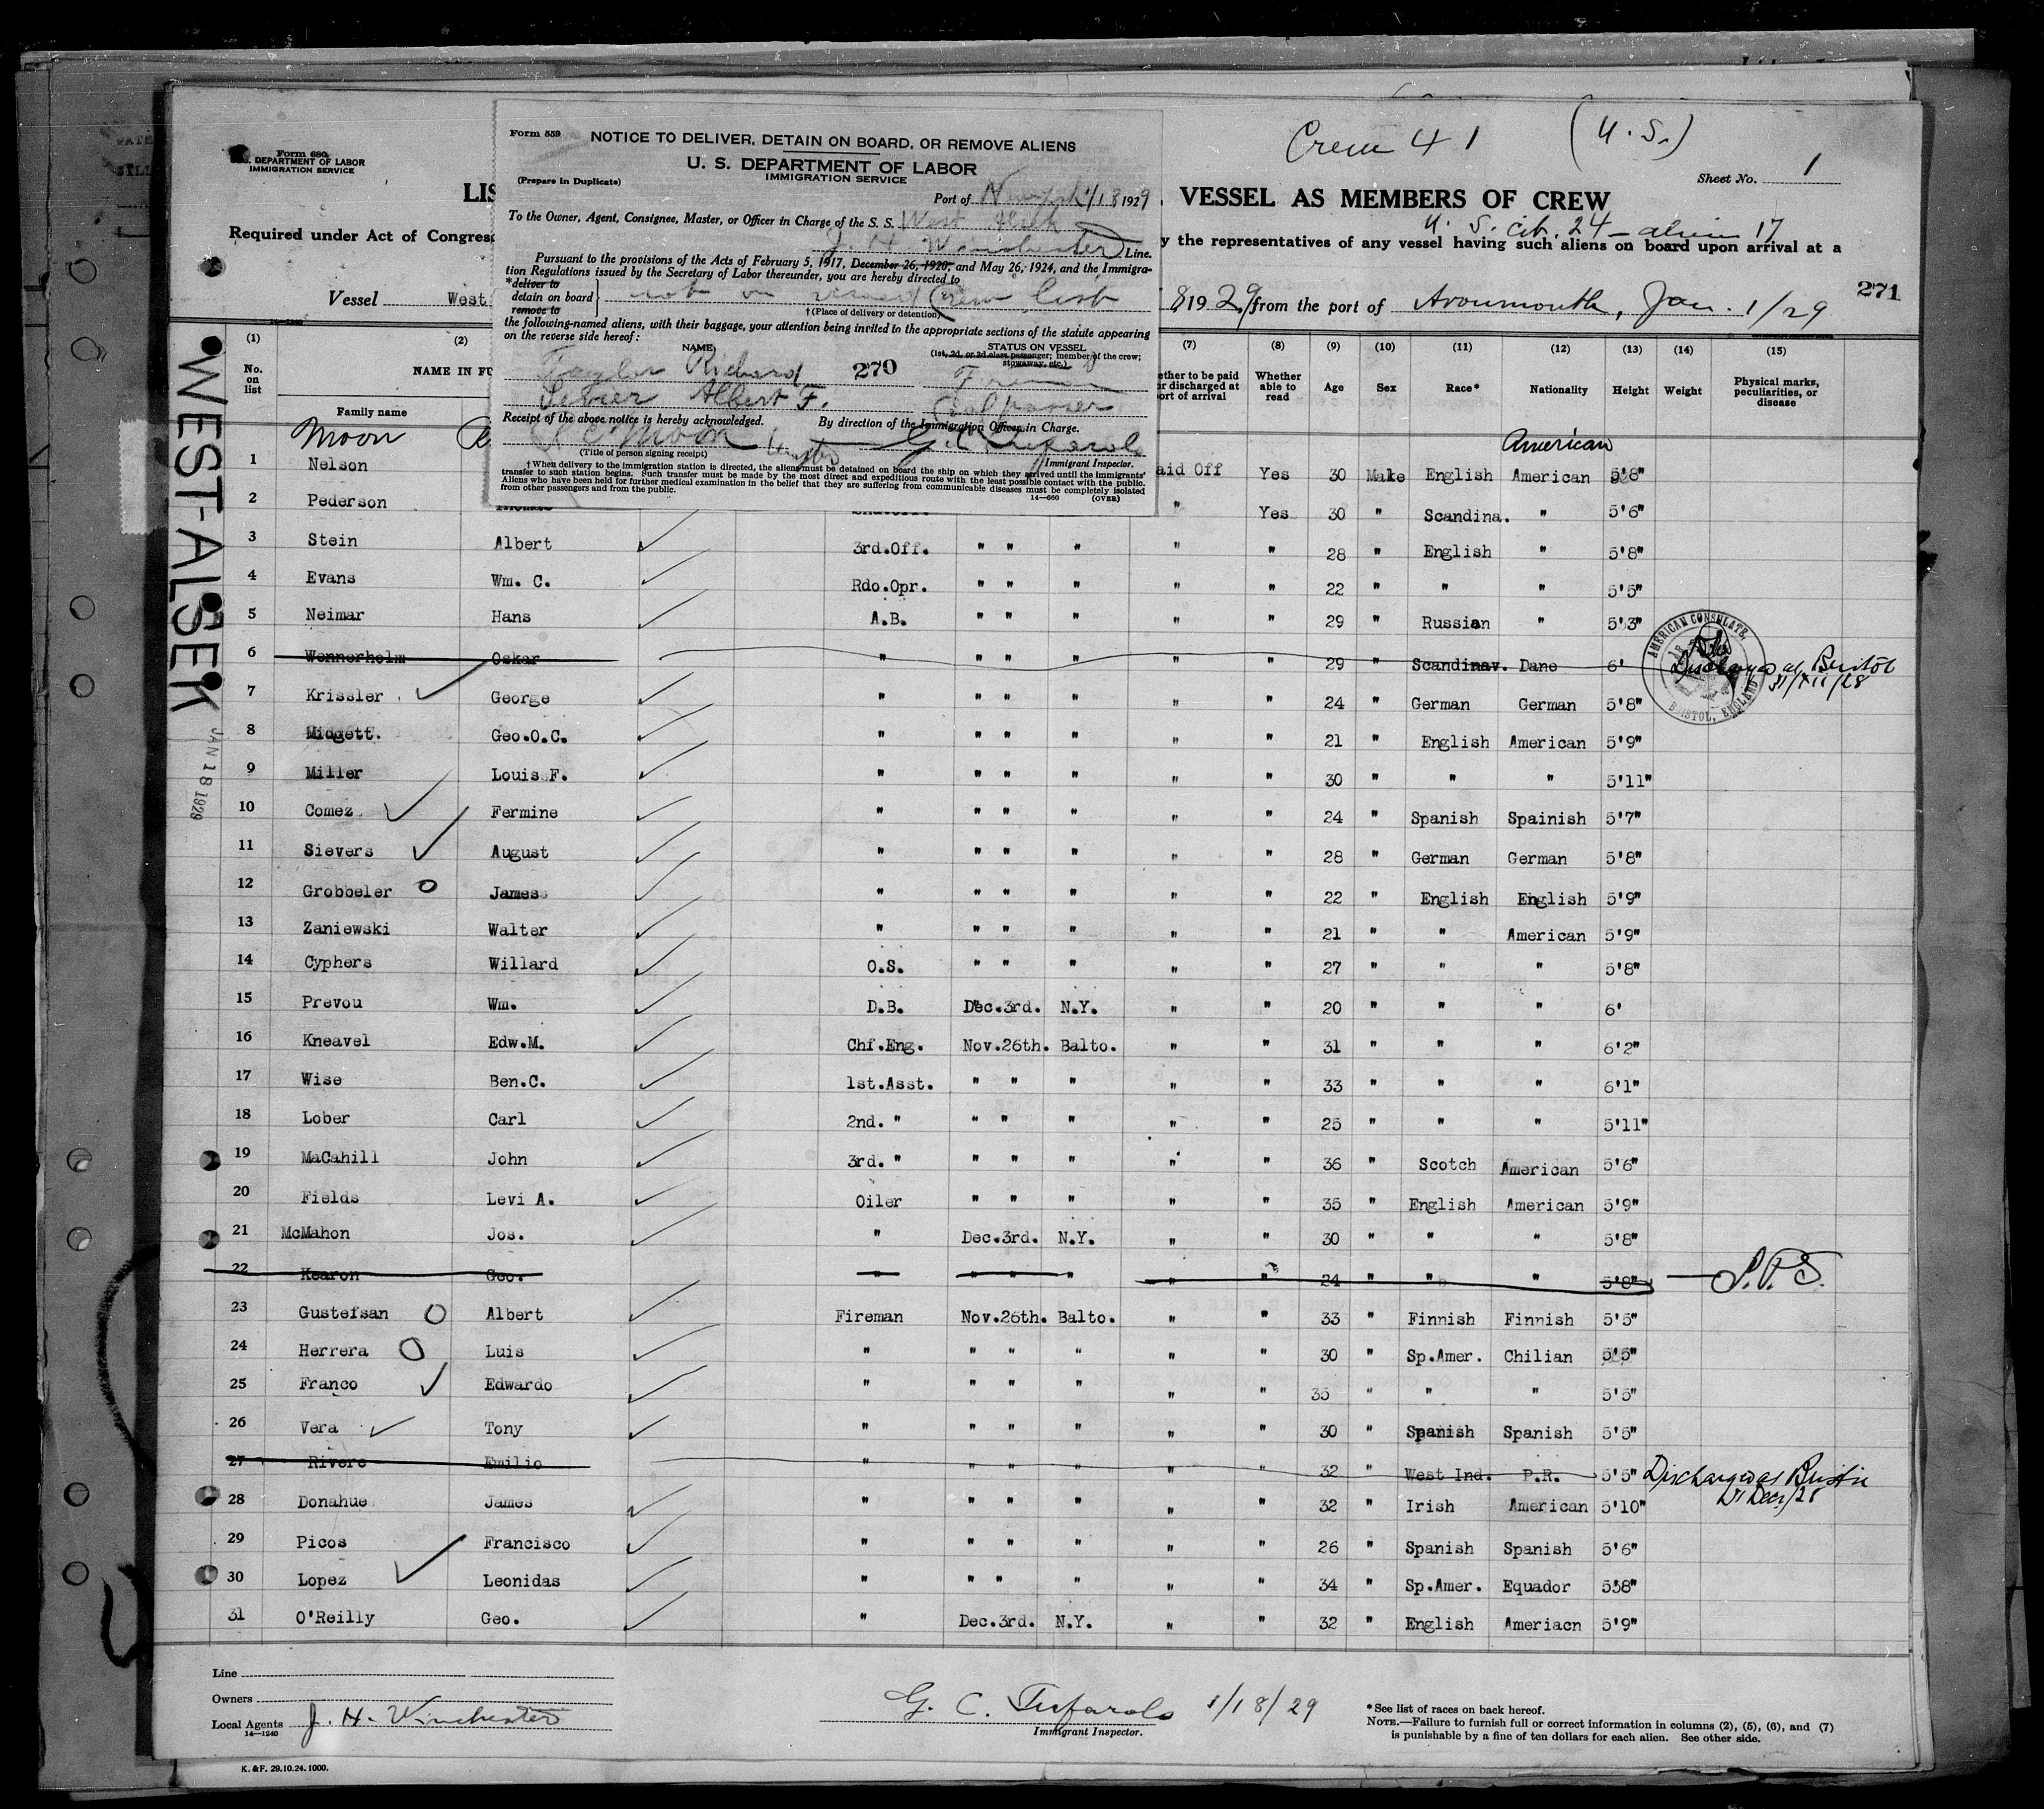 Crew 41 (U.S.)
Form 680
U.S. DEPARTMENT OF LABOR
IMMIGRATION SERVICE
Sheet No. 1
LIS
VESSEL AS MEMBERS OF CREW
U.S. cit. 24 – alien 17
Required under Act of Congress
y the representatives of any vessel having such aliens on board upon arrival at a
Vessel West
8 1929, from the port of Avonmouth, Jan. 1/29
271
Form 559
NOTICE TO DELIVER, DETAIN ON BOARD, OR REMOVE ALIENS
U. S. DEPARTMENT OF LABOR
IMMIGRATION SERVICE
(Prepare in Duplicate)
Port of New York 1/18 1929
To the Owner, Agent, Consignee, Master, or Officer in Charge of the S. S. West Alsek
J. H. Winchester Line.
Pursuant to the provisions of the Acts of February 5, 1917, December 26, 1920, and May 26, 1924, and the Immigra-
tion Regulations issued by the Secretary of Labor thereunder, you are hereby directed to
*deliver to
detain on board
remove to
not on visaed crew list
† (Place of delivery or detention)
the following-named aliens, with their baggage, your attention being invited to the appropriate sections of the statute appearing
on the reverse side hereof:
NAME STATUS ON VESSEL
(1st, 2d, or 3d class passenger; member of the crew;
stowaway, etc.)
Taylor Richard 270 Fireman
Sevier Albert F. Coal passer
Receipt of the above notice is hereby acknowledged. By direction of the Immigration Officer in Charge.
Moon G. C. Tufarolo
(Title of person signing receipt) Immigrant Inspector.
† When delivery to the immigration station is directed, the aliens must be detained on board the ship on which they arrived until the immigrants'
transfer to such station begins. Such transfer must be made by the most direct and expeditious route with the least possible contact with the public.
Aliens who have been held for further medical examination in the belief that they are suffering from communicable diseases must be completely isolated
from other passengers and from the public.
14—660 (OVER)
WEST-ALSEK
JAN 18 1929
(1) (2) (7) (8) (9) (10) (11) (12) (13) (14) (15)
No. on list NAME IN FU ether to be paid or discharged at ort of arrival Whether able to read Age Sex Race* Nationality Height Weight Physical marks, peculiarities, or disease
Family name
Moon American
1 Nelson aid Off Yes 30 Make English American 5'8"
2 Pederson " Yes 30 " Scandina. " 5'6"
3 Stein Albert 3rd.Off. " " " " " 28 " English " 5'8"
4 Evans Wm. C. Rdo.Opr. " " " " " 22 " " " 5'5"
5 Neimar Hans A.B. " " " " " 29 " Russian " 5'3"
6 Wennerholm Oskar " " " " " " 29 " Scandinav. Dane 6' Discharged at Bristol 31/XII/28
AMERICAN CONSULATE, BRISTOL, ENGLAND
7 Krissler George " " " " " " 24 " German German 5'8"
8 Midgett. Geo.O.C. " " " " " " 21 " English American 5'9"
9 Miller Louis F. " " " " " " 30 " " " 5'11"
10 Comez Fermine " " " " " " 24 " Spanish Spainish 5'7"
11 Sievers August " " " " " " 28 " German German 5'8"
12 Grobbeler James " " " " " " 22 " English English 5'9"
13 Zaniewski Walter " " " " " " 21 " " American 5'9"
14 Cyphers Willard O.S. " " " " " 27 " " " 5'8"
15 Prevou Wm. D.B. Dec.3rd. N.Y. " " 20 " " " 6'
16 Kneavel Edw.M. Chf.Eng. Nov.26th. Balto. " " 31 " " " 6'2"
17 Wise Ben.C. 1st.Asst. " " " " " 33 " " " 6'1"
18 Lober Carl 2nd. " " " " " " 25 " " " 5'11"
19 MaCahill John 3rd. " " " " " " 36 " Scotch American 5'6"
20 Fields Levi A. Oiler " " " " " 35 " English American 5'9"
21 McMahon Jos. " Dec.3rd. N.Y. " " 30 " " " 5'8"
22 Kearon Geo. " " " " " " 24 " " " 5'8"
23 Gustefsan Albert Fireman Nov.26th. Balto. " " 33 " Finnish Finnish 5'5"
24 Herrera Luis " " " " " " 30 " Sp.Amer. Chilian 5'5"
25 Franco Edwardo " " " " " " 35 " " " 5'5"
26 Vera Tony " " " " " " 30 " Spanish Spanish 5'5"
27 Rivere Emilio " " " " " " 32 " West Ind. P.R. 5'5" Discharged at Bristol Dec/28
28 Donahue James " " " " " " 32 " Irish American 5'10"
29 Picos Francisco " " " " " " 26 " Spanish Spanish 5'6"
30 Lopez Leonidas " " " " " " 34 " Sp.Amer. Equador 5'8"
31 O'Reilly Geo. " Dec.3rd. N.Y. " " 32 " English Ameriacn 5'9"
Line
Owners
Local Agents J. H. Winchester
14—1240
G. C. Tufarolo 1/18/29
Immigrant Inspector.
* See list of races on back hereof.
NOTE.—Failure to furnish full or correct information in columns (2), (5), (6), and (7)
is punishable by a fine of ten dollars for each alien. See other side.
K. & F. 29.10.24. 1000.